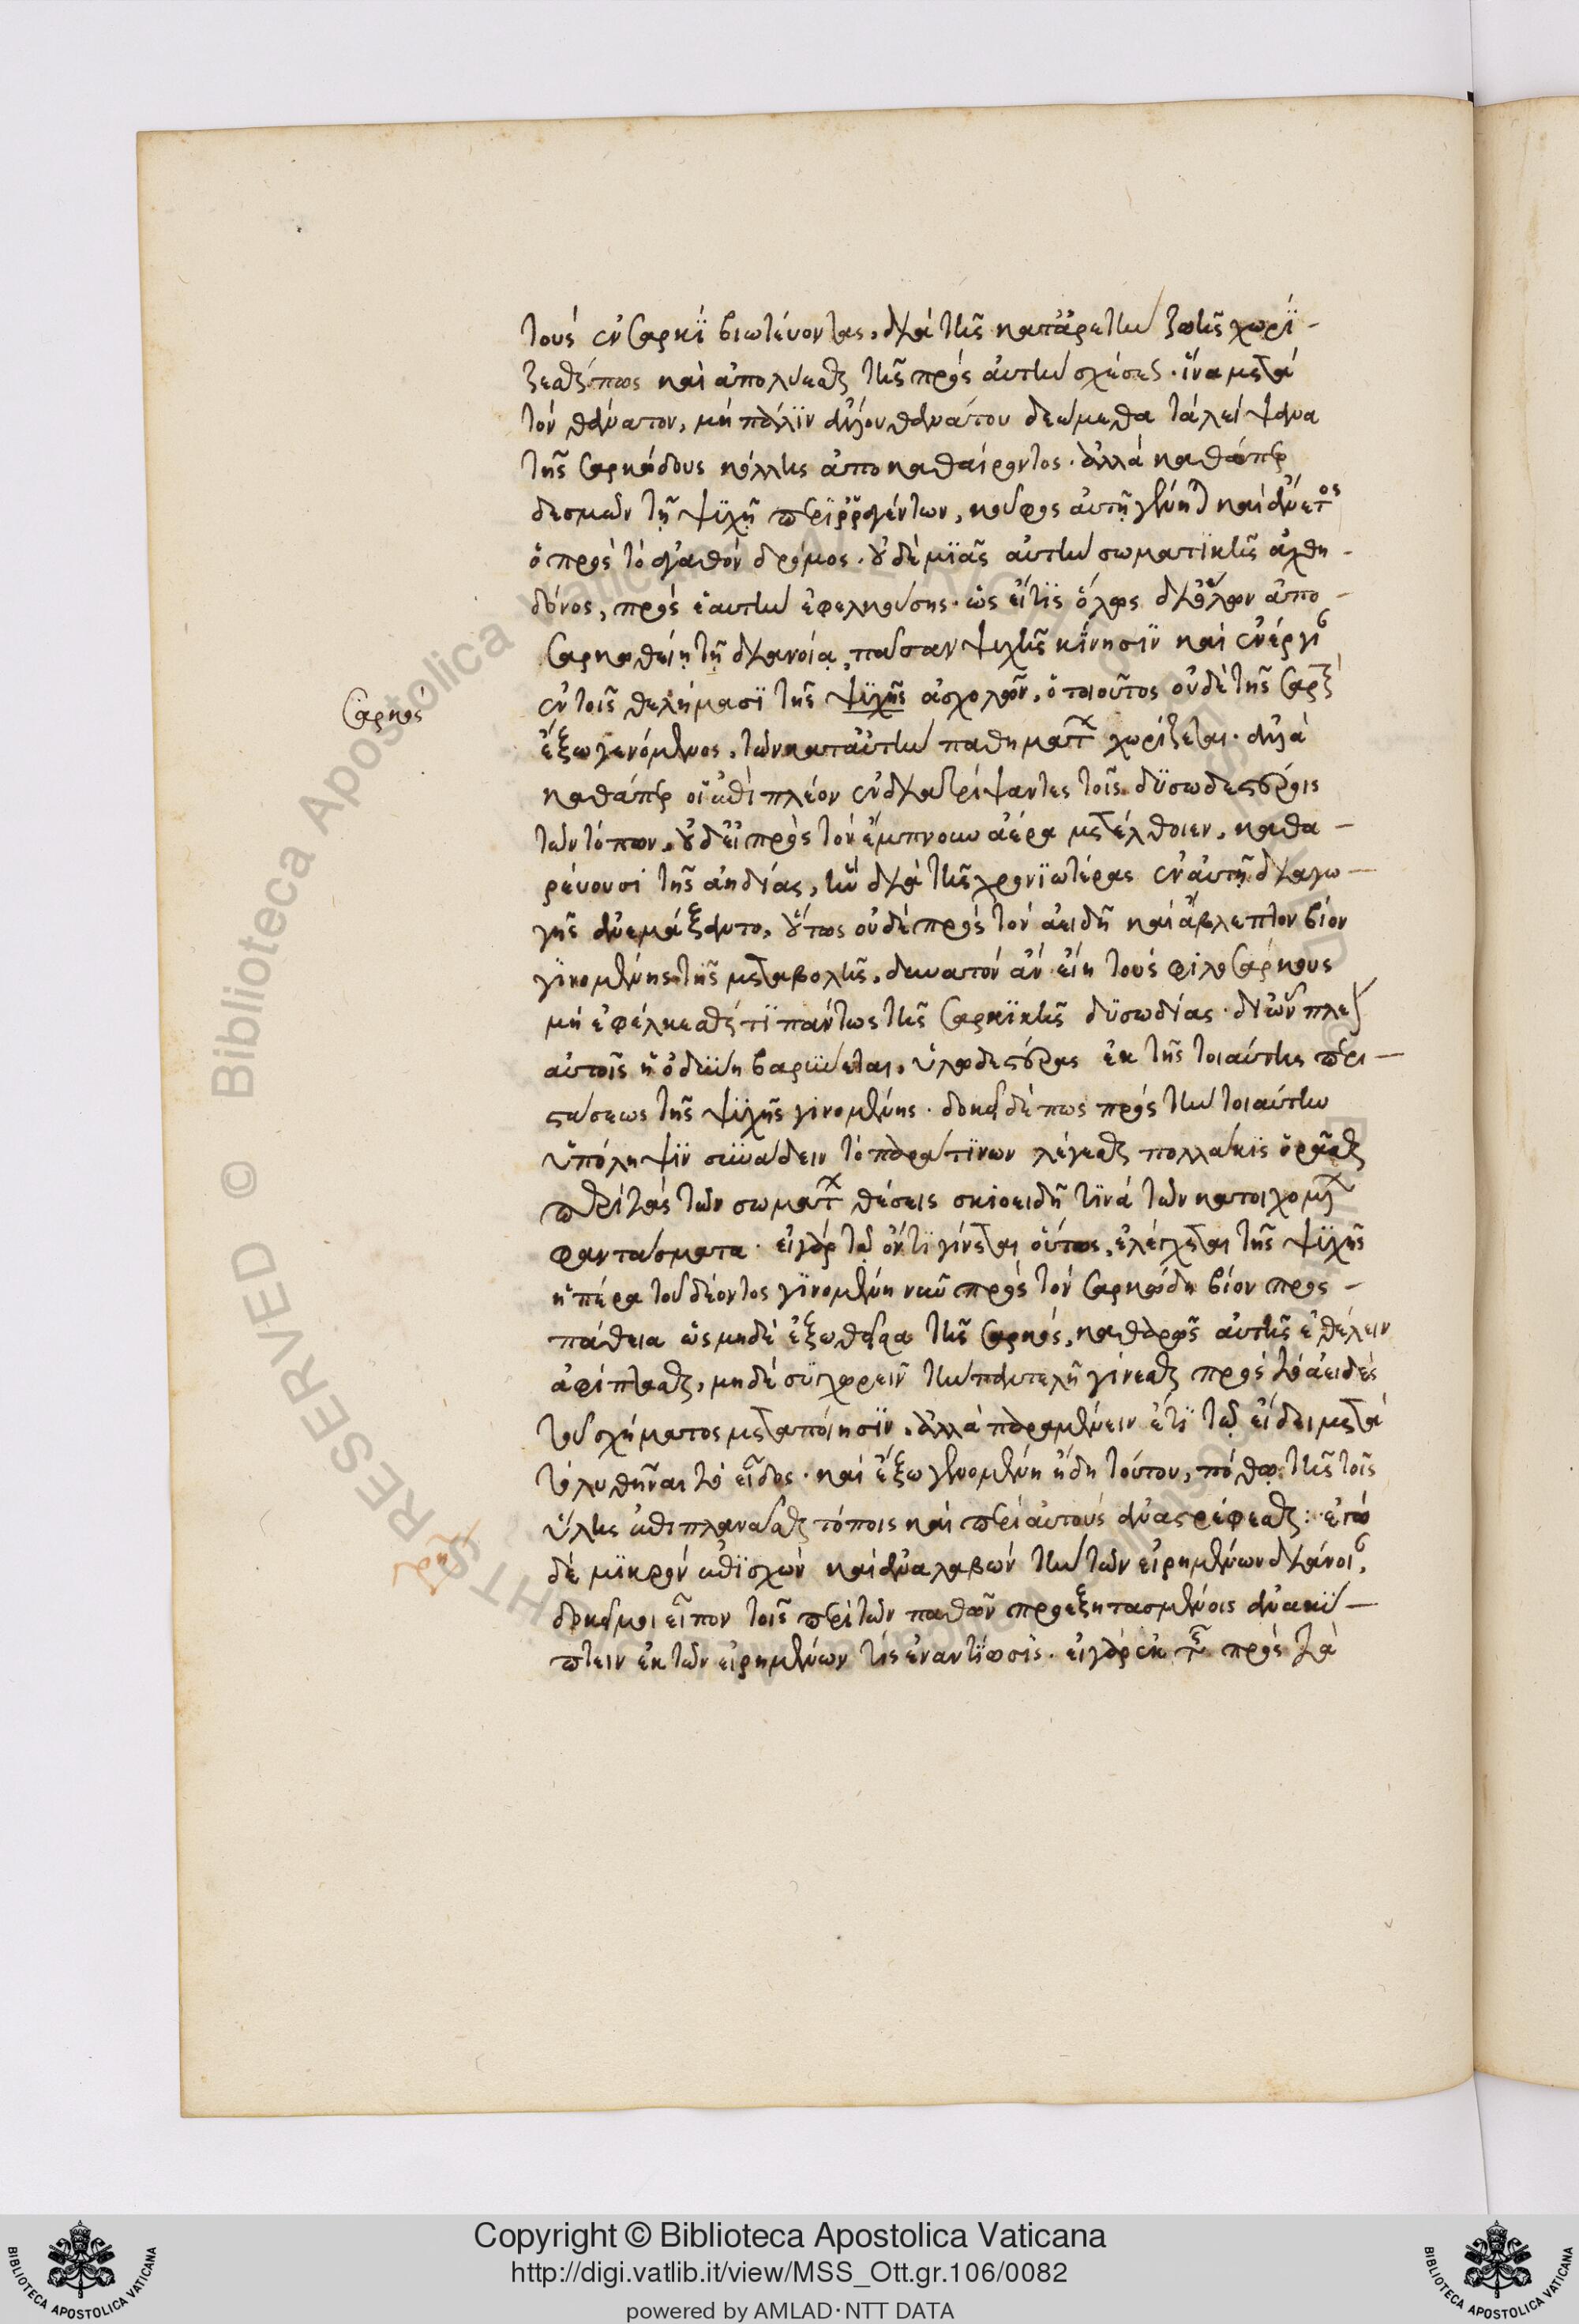 τοὺς ἐν σαρκὶ βιωτεύοντας, διὰ τῆς κατ' ἀρετὴν ζωῆς χωρί-
ζεσθαί πως καὶ ἀπολύεσθαι τῆς πρὸς αὐτὴν σχέσεως. ἵνα μετὰ
τὸν θάνατον, μὴ πάλιν ἄλλου θανάτου δεώμεθα τὰ λείψανα
τῆς σαρκώδους κόλλης ἀποκαθαίροντος. ἀλλὰ καθάπερ
δεσμῶν τῇ ψυχῇ περιρραγέντων, κοῦφος αὐτῇ γένηται καὶ ἄνετος
ὁ πρὸς τὸ ἀγαθὸν δρόμος. οὐδὲ μιᾶς αὐτὴν σωματικῆς ἀχθη-
δόνος, πρὸς ἑαυτὴν ἐφελκούσης. ὡς εἴ τις ὅλως δι' ὅλων ἀπο-
σαρκωθείη τῇ διανοίᾳ, πᾶσαν ψυχῆς κίνησιν καὶ ἐνέργειαν
ἐν τοῖς θελήμασι τῆς ψυχῆς ἀσχολῶν, ὁ τοιοῦτος οὐδὲ τῆς σαρκὸς
σαρκὸς
ἔξω γενόμενος, τῶν κατ' αὐτὴν παθημάτων χωρίζεται. ἀλλὰ
καθάπερ οἱ ἐπὶ πλέον ἐνδιατρίψαντες τοῖς δυσωδεστέροις
τῶν τόπων, οὐδ' εἰ πρὸς τὸν ἔμπνουν ἀέρα μετέλθοιεν, καθα-
ρεύουσι τῆς ἀηδίας, ἣν διὰ τῆς χρονιωτέρας ἐν αὐτῇ διαγω-
γῆς ἀνεμάξαντο, οὕτως οὐδὲ πρὸς τὸν ἀειδῆ καὶ ἄβλεπτον βίον
γινομένης τῆς μεταβολῆς, δυνατὸν ἂν εἴη τοὺς φιλοσάρκους
μὴ ἐφέλκεσθαί τι πάντως τῆς σαρκικῆς δυσωδίας. δι' ὧν πλεῖον
αὐτοῖς ἡ ὀδύνη βαρύνεται, ὑλωδεστέρας ἐκ τῆς τοιαύτης περι-
στάσεως τῆς ψυχῆς γινομένης. δοκεῖ δέ πως πρὸς τὴν τοιαύτην
ὑπόληψιν συνᾴδειν τὸ παρά τινων λέγεσθαι πολλάκις ὁρᾶσθαι
περὶ τὰς τῶν σωμάτων θέσεις σκιοειδῆ τινὰ τῶν κατοιχομένων
φαντάσματα. εἰ γὰρ τῷ ὄντι γίνεται οὕτως, ἐλέγχεται τῆς ψυχῆς
ἡ πέρα τοῦ δέοντος γινομένη νῦν πρὸς τὸν σαρκώδη βίον προς-
πάθεια ὡς μηδὲ ἐξωθεῖσα τῆς σαρκὸς, καθαρῶς αὐτῆς ἐθέλειν
ἀφίπτασθαι, μηδὲ συγχωρεῖν τὴν παντελῆ γίνεσθαι πρὸς τὸ ἀειδὲς
τοῦ σχήματος μεταποίησιν, ἀλλὰ παραμένειν ἔτι τῷ εἴδει μετὰ
τὸ λυθῆναι τὸ εἶδος. καὶ ἔξω γενομένη ἤδη τούτου, πόθῳ τῆς τοῖς
ὕλης ἐπιπλανᾶσθαι τόποις καὶ περὶ αὐτοὺς ἀναστρέφεσθαι: ἐγὼ
δὲ μικρὸν ἐπισχὼν καὶ ἀναλαβὼν τὴν τῶν εἰρημένων διάνοιαν,
δοκεῖ μοι εἶπον τοῖς περὶ τῶν παθῶν προεξητασμένοις ἀνακύ-
πτειν ἐκ τῶν εἰρημένων τίς ἐναντίωσις. εἰ γὰρ ἐκ τῆς πρὸς τὰ
Copyright © Biblioteca Apostolica Vaticana
http://digi.vatlib.it/view/MSS_Ott.gr.106/0082
powered by AMLAD·NTT DATA